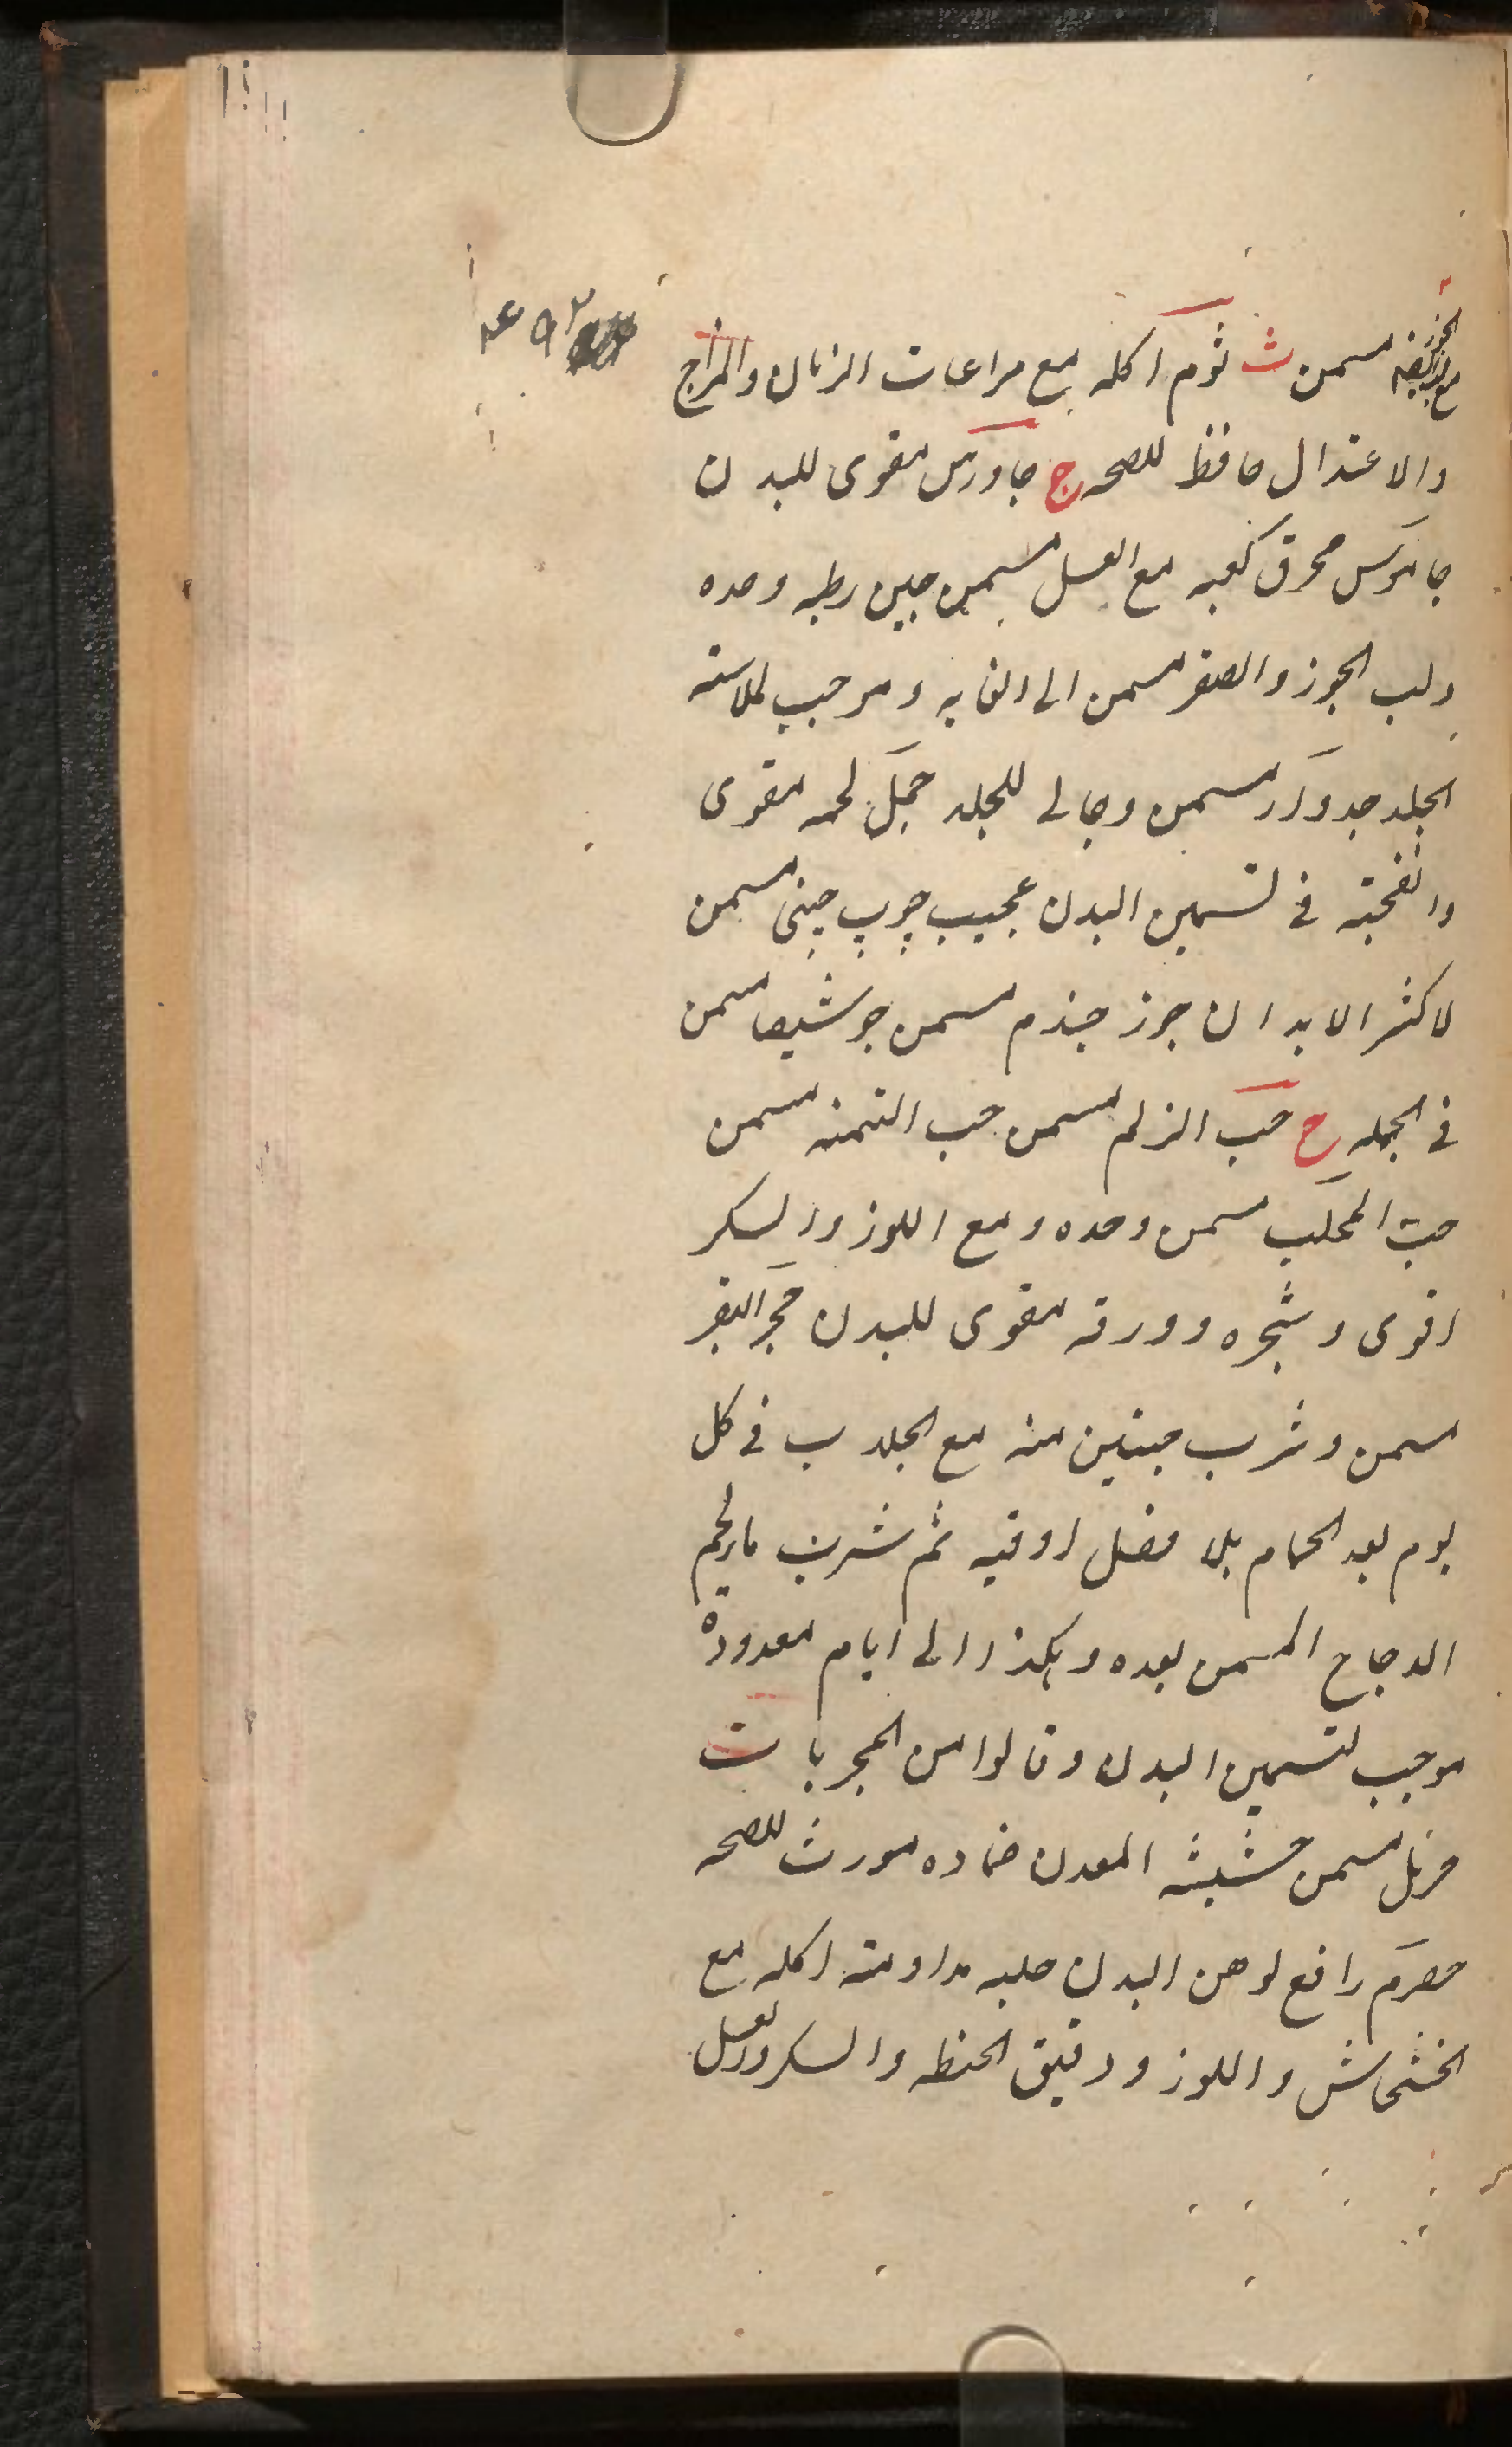 مسمن ث ثوم اكله مع مراعات الزمان والمزاج
والاعتدال حافظ للصحه ج جاورس مقوى للبدن
جاموس محرق كعبه مع العسل مسمن جبن رطبه وحده
ولب الجوز والصقر مسمن الى الغايه وموجب لملاسته
الجلد جدوار مسمن وجالى للجلد جمل لحمه مقوى
وانفحته فى تسمين البدن عجيب چوپ چینی مسمن
لاكثر الابدان جوز جندم مسمن جوشيصا مسمن
فى الجمله ح حب الزلم مسمن حب السمنه مسمن
حب المحلب مسمن وحده ومع اللوز والسكر
اقوى وشجره وورقه مقوى للبدن حجر البقر
مسمن وشرب حبتين منه مع الجلاب فى كل
يوم بعد الحمام بلا فصل اوقيه ثم شرب
الدجاج المسمن بعده وهكذا الى ايام معدودة
موجب لتسمين البدن وقالوا من المجربات
مسمن حشيشه المعدن ضماده مورث للصحه
حصرم رافع لوهن البدن حلبه مداومته اكله مع
الخشخاش واللوز ودقيق الحنطه والسكر والعسل